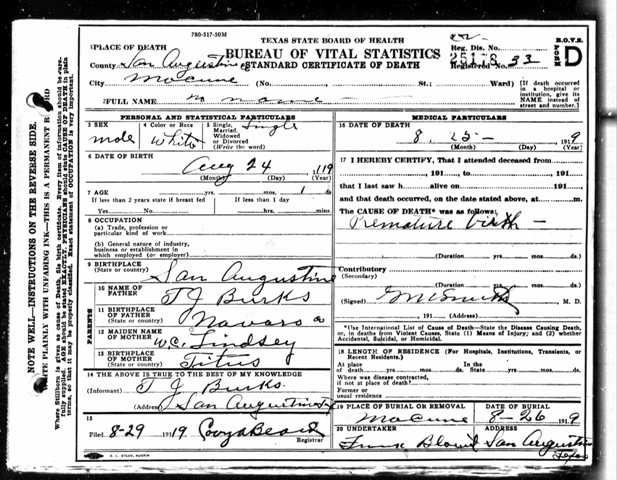 780-517-50M
TEXAS STATE BOARD OF HEALTH
BUREAU OF VITAL STATISTICS
STANDARD CERTIFICATE OF DEATH
B.O.V.S.
FORM D
1 PLACE OF DEATH
County San Augustine
City
(No. St.; Ward)
Reg. Dis. No.
Registered No. 33
[If death occurred in a hospital or institution, give its NAME instead of street and number.]
2 FULL NAME no name
PERSONAL AND STATISTICAL PARTICULARS
3 SEX male
4 Color or Race White
5 Single, Married, Widowed or Divorced (Write the word) Single
6 DATE OF BIRTH
Aug 24, 1919
(Month) (Day) (Year)
7 AGE yrs. mos. 1 ds.
If less than 2 years state if breast fed
Yes No
If less than 1 day
hrs. min.
8 OCCUPATION
(a) Trade, profession or particular kind of work
(b) General nature of industry, business or establishment in which employed (or employer)
9 BIRTHPLACE (State or country) San Augustine
PARENTS
10 NAME OF FATHER T J Burks
11 BIRTHPLACE OF FATHER (State or country) Navaro
12 MAIDEN NAME OF MOTHER W.C. Lindsey
13 BIRTHPLACE OF MOTHER (State or country) Titus
14 THE ABOVE IS TRUE TO THE BEST OF MY KNOWLEDGE
T J Burks
(Address) San Augustine
15
Filed 8-29 1919
Registrar
MEDICAL PARTICULARS
16 DATE OF DEATH
8 25 1919
(Month) (Day) (Year)
17 I HEREBY CERTIFY, That I attended deceased from
191 , to 191
that I last saw h alive on 191
and that death occurred, on the date stated above, at m.
The CAUSE OF DEATH* was as follows:
Premature Birth
(Duration yrs. mos. ds.
Contributory
(Secondary)
(Duration yrs. mos. ds.
(Signed) M. D.
191 (Address)
*Use International List of Cause of Death—State the Disease Causing Death, or, in deaths from Violent Causes, State (1) Means of Injury; and (2) whether Accidental, Suicidal, or Homicidal.
18 LENGTH OF RESIDENCE (For Hospitals, Institutions, Transients, or Recent Residents.)
At place of death yrs. mos. ds. State yrs. mos. ds.
Where was disease contracted, if not at place of death?
Former or usual residence
19 PLACE OF BURIAL OR REMOVAL
DATE OF BURIAL
8-26 1919
20 UNDERTAKER
ADDRESS
San Augustine
Texas
NOTE WELL—INSTRUCTIONS ON THE REVERSE SIDE.
WRITE PLAINLY WITH UNFADING INK—THIS IS A PERMANENT